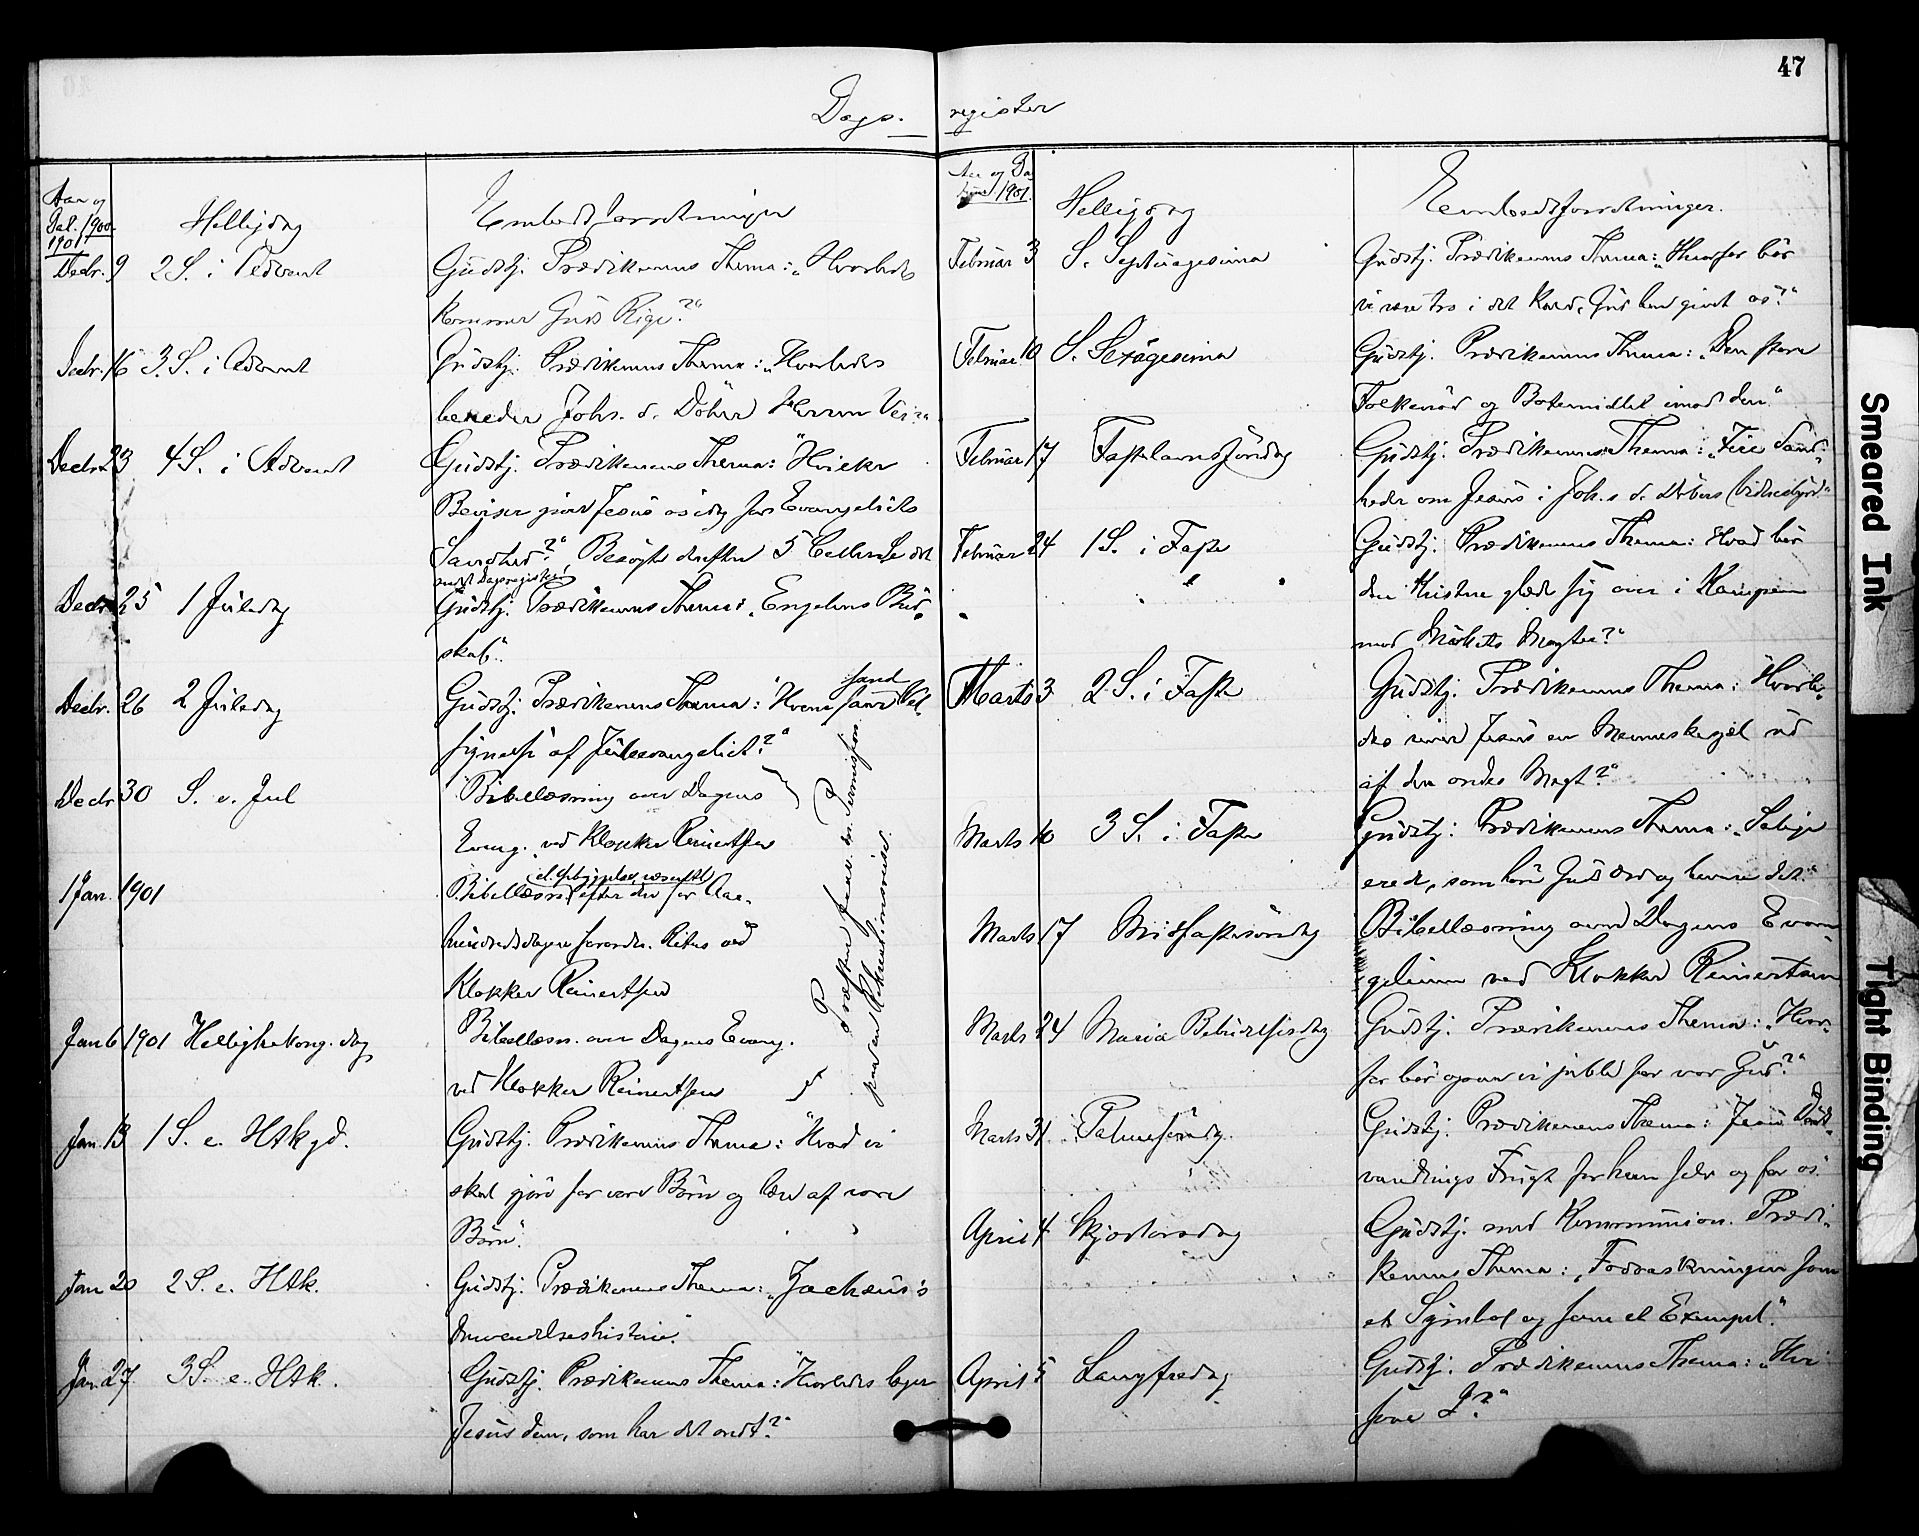 47
Dags-register
Aar og
Dat. 1900-
1901
Helligdag
Embedsforretninger
Decbr. 9 2 S. i Advent Gudstj. Prædikenens Thema: „Hvorledes
kommer Guds Rige?“
Decbr. 16 3. S. i Advent Gudstj. Prædikenens Thema: „Hvorledes
bereder Johs. d. Döber Herren Vei?“
Decbr. 23 4 S. i Advent Gudstj. Prædikenens Thema: "Hvilke
Beviser giver Jesus os idag for Evangeliets
Sandhed?“ Besögte derefter 5 Celler. Se det
Dagsregister
Decbr. 25 1 Juledag Gudstj. Prædikenens Thema: „Engelens Bud-
skab“.
Decbr. 26 2 Juledag Gudstj. Prædikenens Thema: "Hvem faar Vel-
signelse af Juleevangeliet?“
Decbr 30 S. e. Jul Bibellæsning over Dagens
Evang. ved Klokker Reinertsen
1 Jan. 1901 Bibellæsn. efter den for Aar-
hundredsdagen forordn. Ritus ved
Klokker Reinertsen
Jan 6 1901 Helligtrekong. dag Bibellæsn. over Dagens Evang.
ved Klokker Reinertsen
Præsten frav. m. Permission
Jan. 13 1 S. e. H3kgd. Gudstj. Prædikenens Thema: "Hvad vi
skal gjöre for vore Börn og lære af vore
Börn“.
Jan 20 2 S. e. H3k. Gudstj. Prædikenens Thema: „Zachæus's
Omvendelseshistorie.“
Jan 27 3 S. e. H3k. Gudstj. Prædikenens Thema: "Hvorledes læger
Jesus dem, som har det ondt?“
Aar og Da
1901.
Helligdag
Embedsforretninger.
Februar 3 S. Septuagesima Gudstj. Prædikenens Thema: „Hvorfor bör
vi være tro i det Kald, Gud har givet os?“
Februar 10 S. Sexagesima Gudstj. Prædikenens Thema: „Den store
Folkenöd og Botemidlet imod den“
Februar 17 Fastelavnssöndag Gudstj. Prædikenens Thema: „Fire Sand-
heder om Jesus i Johs. d. Döbers Vidnesbyrd“
Februar 24 1 S. i Faste Gudstj. Prædikenens Thema: Hvad bör
den Kristne glæde sig over i Kampen
mod Mörkets Magter?“
Marts 3 2 S. i Faste Gudstj. Prædikenens Thema: "Hvorle-
des river Jesus en Menneskesjæl ud
af den ondes Magt?“
Marts 10 3 S. i Faste Gudstj. Prædikenens Thema: „Salige
ere de, som höre Guds Ord og bevare det.“
Marts 17 Midfastesöndag Bibellæsning over Dagens Evan-
gelium ved Klokker Reinertsen
Marts 24 Maria Bebudelsesdag Gudstj. Prædikenens Thema: „Hvor-
for bör ogsaa vi juble for vor Gud?“
Marts 31 Palmesöndag Gudstj. Prædikenens Thema: Jesu Döds-
vandrings Frugt for ham selv og for os“
April 4 Skjærtorsdag Gudstj. med Kommunion. Prædi-
kenens Thema: „Fodtvætningen som
et Symbol og som et Exempel.“
April 5 Langfredag Gudstj. Prædikenens Thema: „Hvi
sove I?“
Smeared Ink
Tight Binding